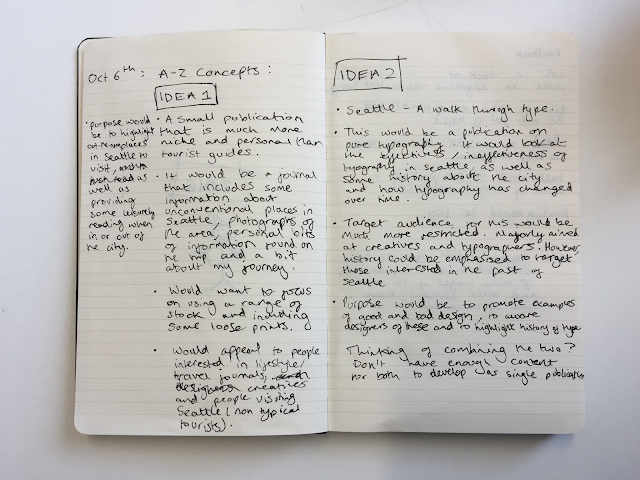 Oct 6th: A-Z Concepts:
IDEA 1
• Purpose would
be to highlight
places
in Seattle to
visit,
as
well as
providing
some leisurely
reading when
in or out of
the city.
• A small publication
that is much more
niche and personal than
tourist guides.
• It would be a journal
that includes some
information about
unconventional places in
Seattle, photographs of
the area, personal bits
of information found on
the trip and a bit
about my journey.
• Would want to focus
on using a range of
stock and including
some loose prints.
• Would appeal to people
interested in lifestyle/
travel journals,
designers creatives
and people visiting
Seattle (non typical
tourists).
IDEA 2
• Seattle - A walk through type.
• This would be a publication on
pure typography. It would look at
the effectivess / ineffectiveness of
typography in seattle as well as
some history about the city
and how typography has changed
over time.
• Target audience for this would be
much more restricted. Majorly aimed
at creatives and typographers. However,
history could be emphasised to target
those interested in the past of
Seattle
• Purpose would be to promote examples
of good and bad design, to aware
designers of these and to highlight history of type
Thinking of combining the two?
Don't have enough content
for both to develop as single publication